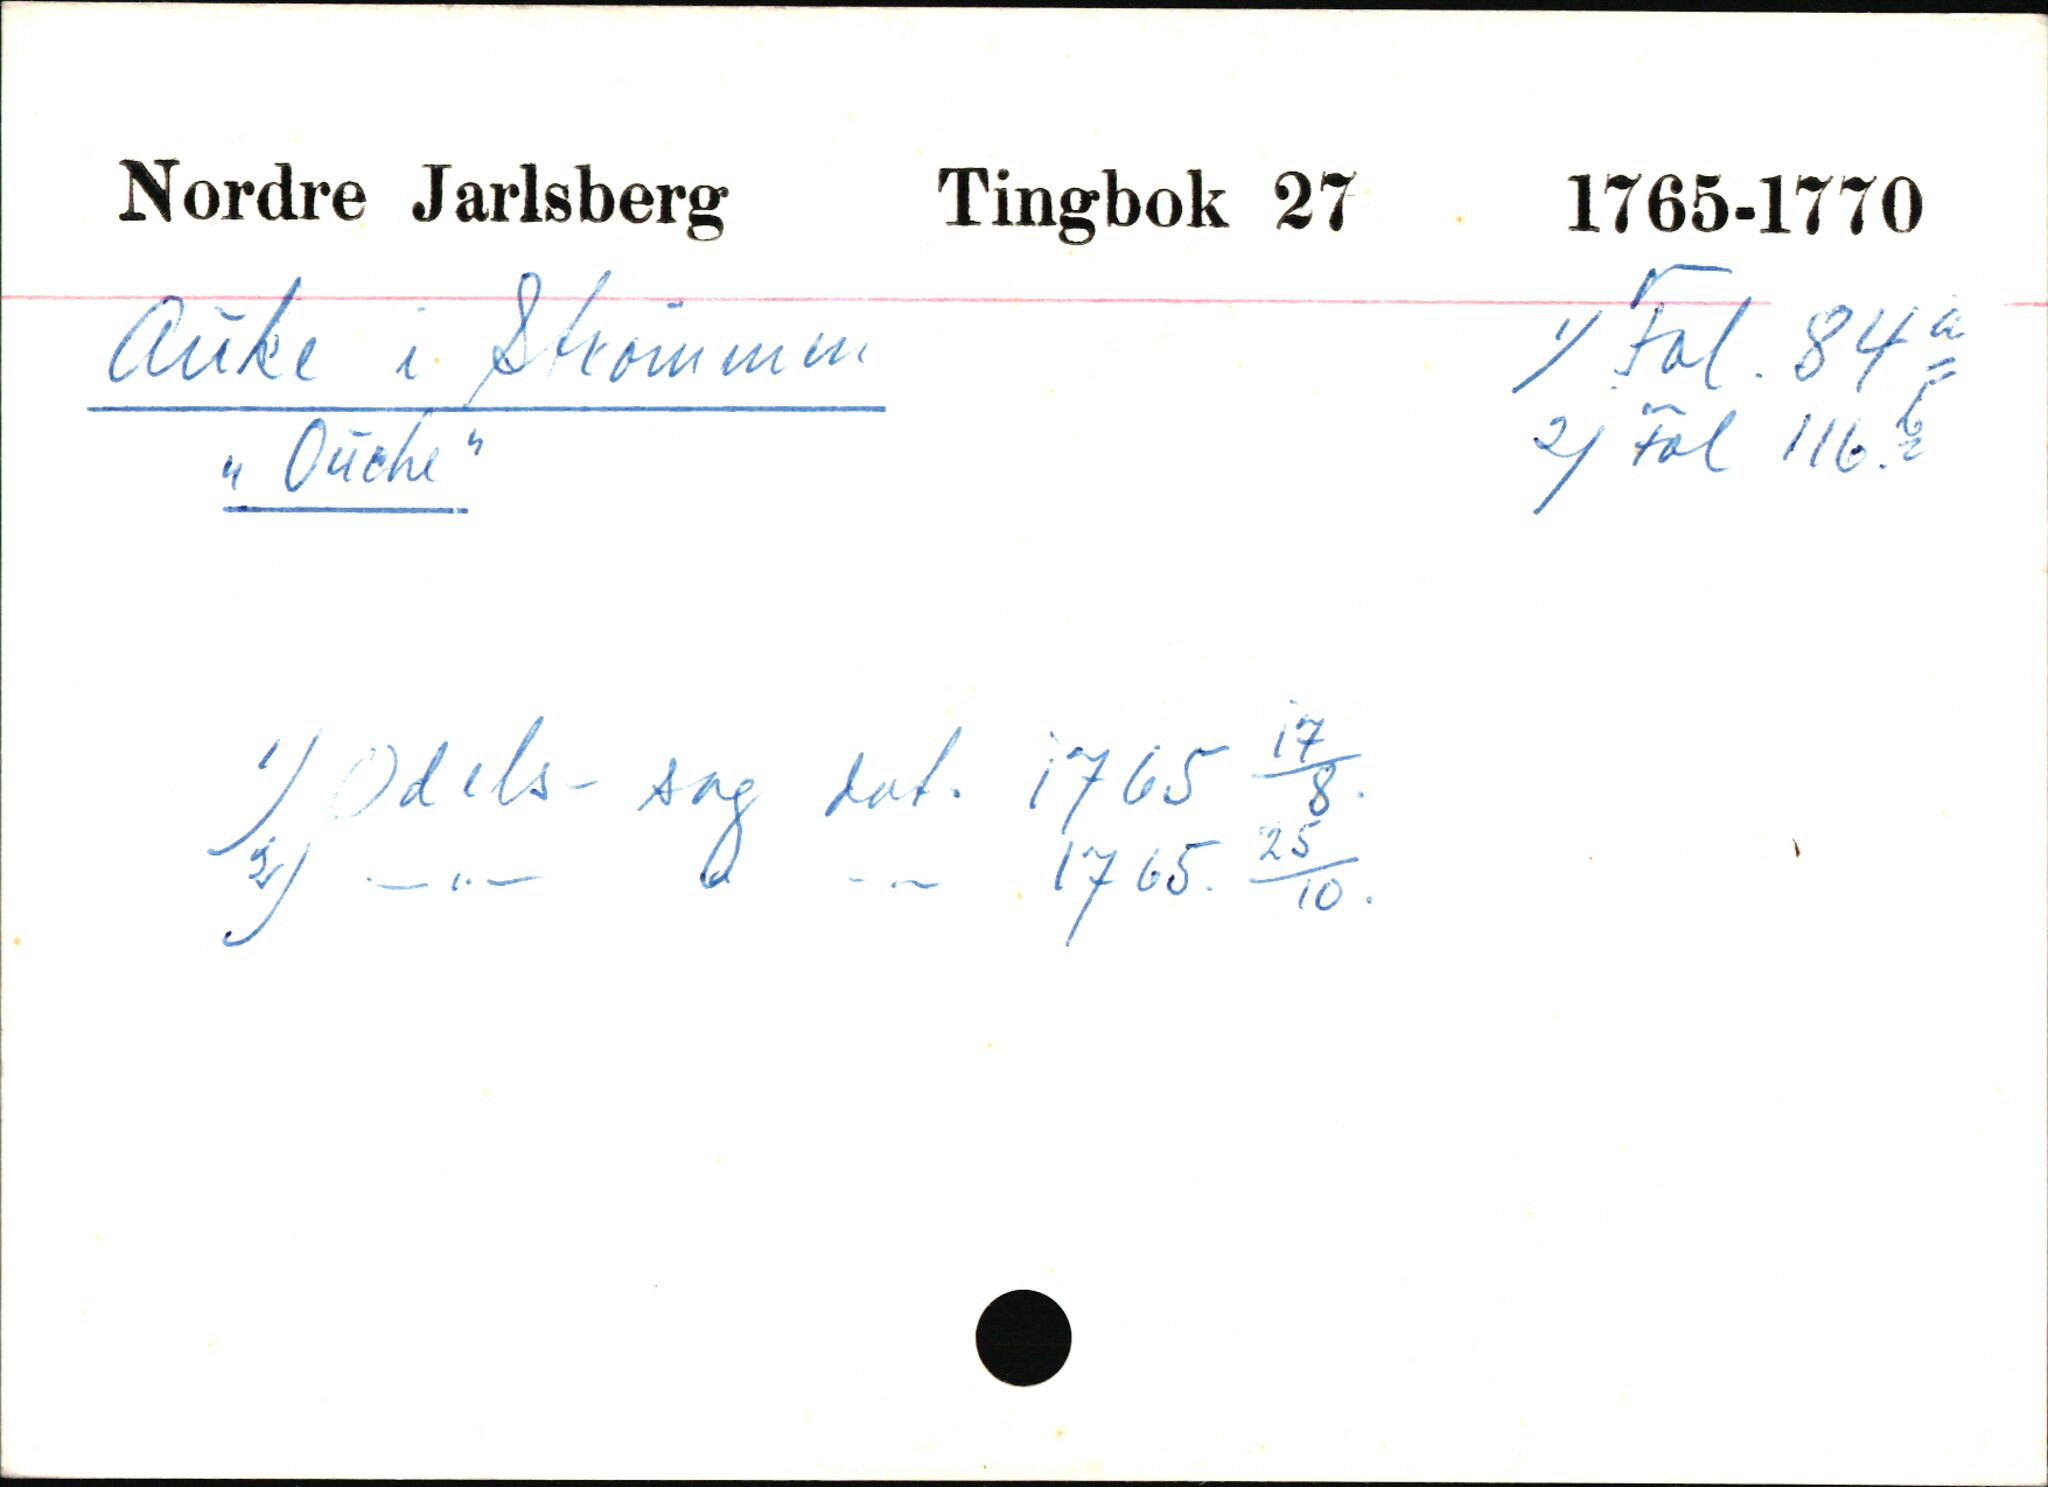 Nordre Jarlsberg Tingbok 27 1765-1770
Auke i Strömmen 1) Fol. 84 a
"Ouche" 2) Fol 116. b
1) Odels- sag dat. 1765 17/8.
2) —"— —"— 1765. 25/10.